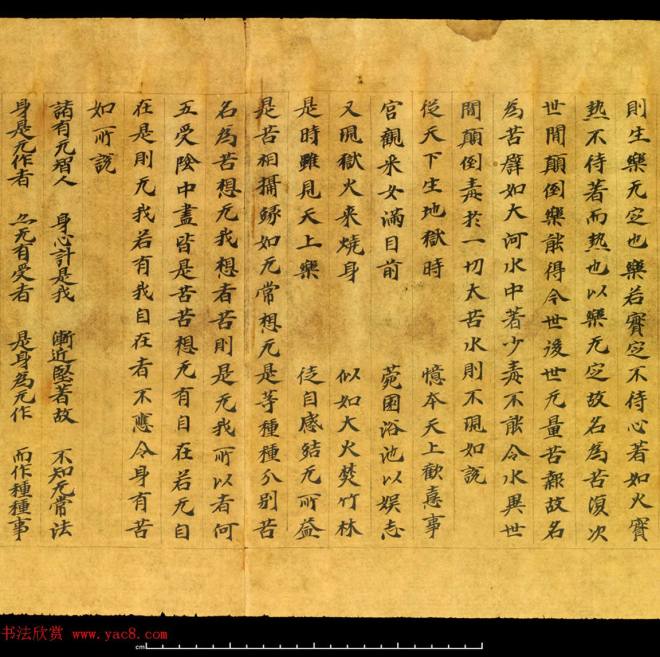 則生樂无定也樂若實定不待心著如火實
熱不待著而熱也以樂无定故名為苦復次
世間顛倒樂能得今世後世无量苦報故名
為苦譬如大河水中著少毒不能令水異世
間顛倒毒於一切大苦水則不現如說
從天下生地獄時 憶本天上歡憙事
宮觀采女滿目前 菀園浴池以娛志
又現獄火来燒身 似如大火焚竹林
是時雖見天上樂 徒自感結无所益
是苦相攝緣如无常想无是等種種分別苦
名為苦想无我想者苦則是无我所以者何
五受陰中盡皆是苦苦想无有自在若无自
在是則无我若有我自在者不應令身有苦
如所說
諸有无智人 身心計是我 漸近堅著故 不知无常法
身是无作者 亦无有受者 是身為无作 而作種種事
书法欣赏 www.yac8.com
cm